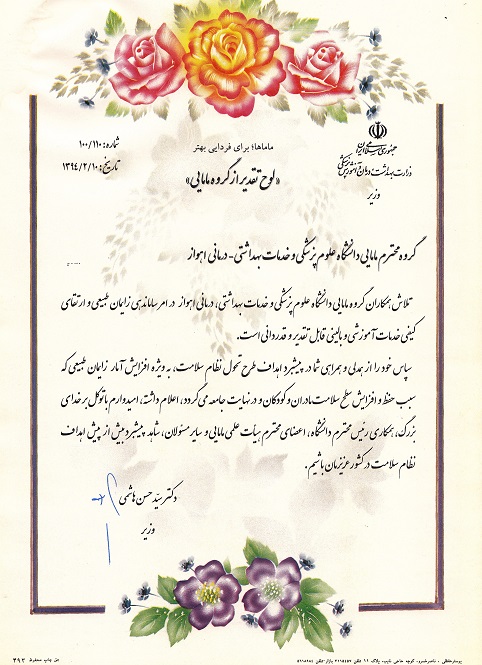 جمهوری اسلامی ایران
وزارت بهداشت درمان و آموزش پزشکی
وزیر
شماره: ۱۰۰/۱۱۰
تاریخ: ۱۳۹۴/۲/۱۰
ماماها؛ برای فردایی بهتر
«لوح تقدیر از گروه مامایی»
گروه محترم مامایی دانشگاه علوم پزشکی و خدمات بهداشتی - درمانی اهواز
تلاش همکاران گروه مامایی دانشگاه علوم پزشکی و خدمات بهداشتی، درمانی اهواز در امر ساماندهی زایمان طبیعی و ارتقای
کیفی خدمات آموزشی و بالینی قابل تقدیر و قدردانی است.
سپاس خود را از همدلی و همراهی شما در پیشبرد اهداف طرح تحول نظام سلامت، به ویژه افزایش آمار زایمان طبیعی که
سبب حفظ و افزایش سطح سلامت مادران و کودکان و در نهایت جامعه می گردد، اعلام داشته، امیدوارم با توکل بر خدای
بزرگ، همکاری رئیس محترم دانشگاه، اعضای محترم هیات علمی مامایی و سایر مسئولان، شاهد پیشبرد بیش از پیش اهداف
نظام سلامت در کشور عزیزمان باشیم.
دکتر سید حسن هاشمی
وزیر
پوسترحافظی - ناصرخسرو، کوچه حاجی نایب، پلاک ۱۱ تلفن
حق چاپ محفوظ ۴۹۲